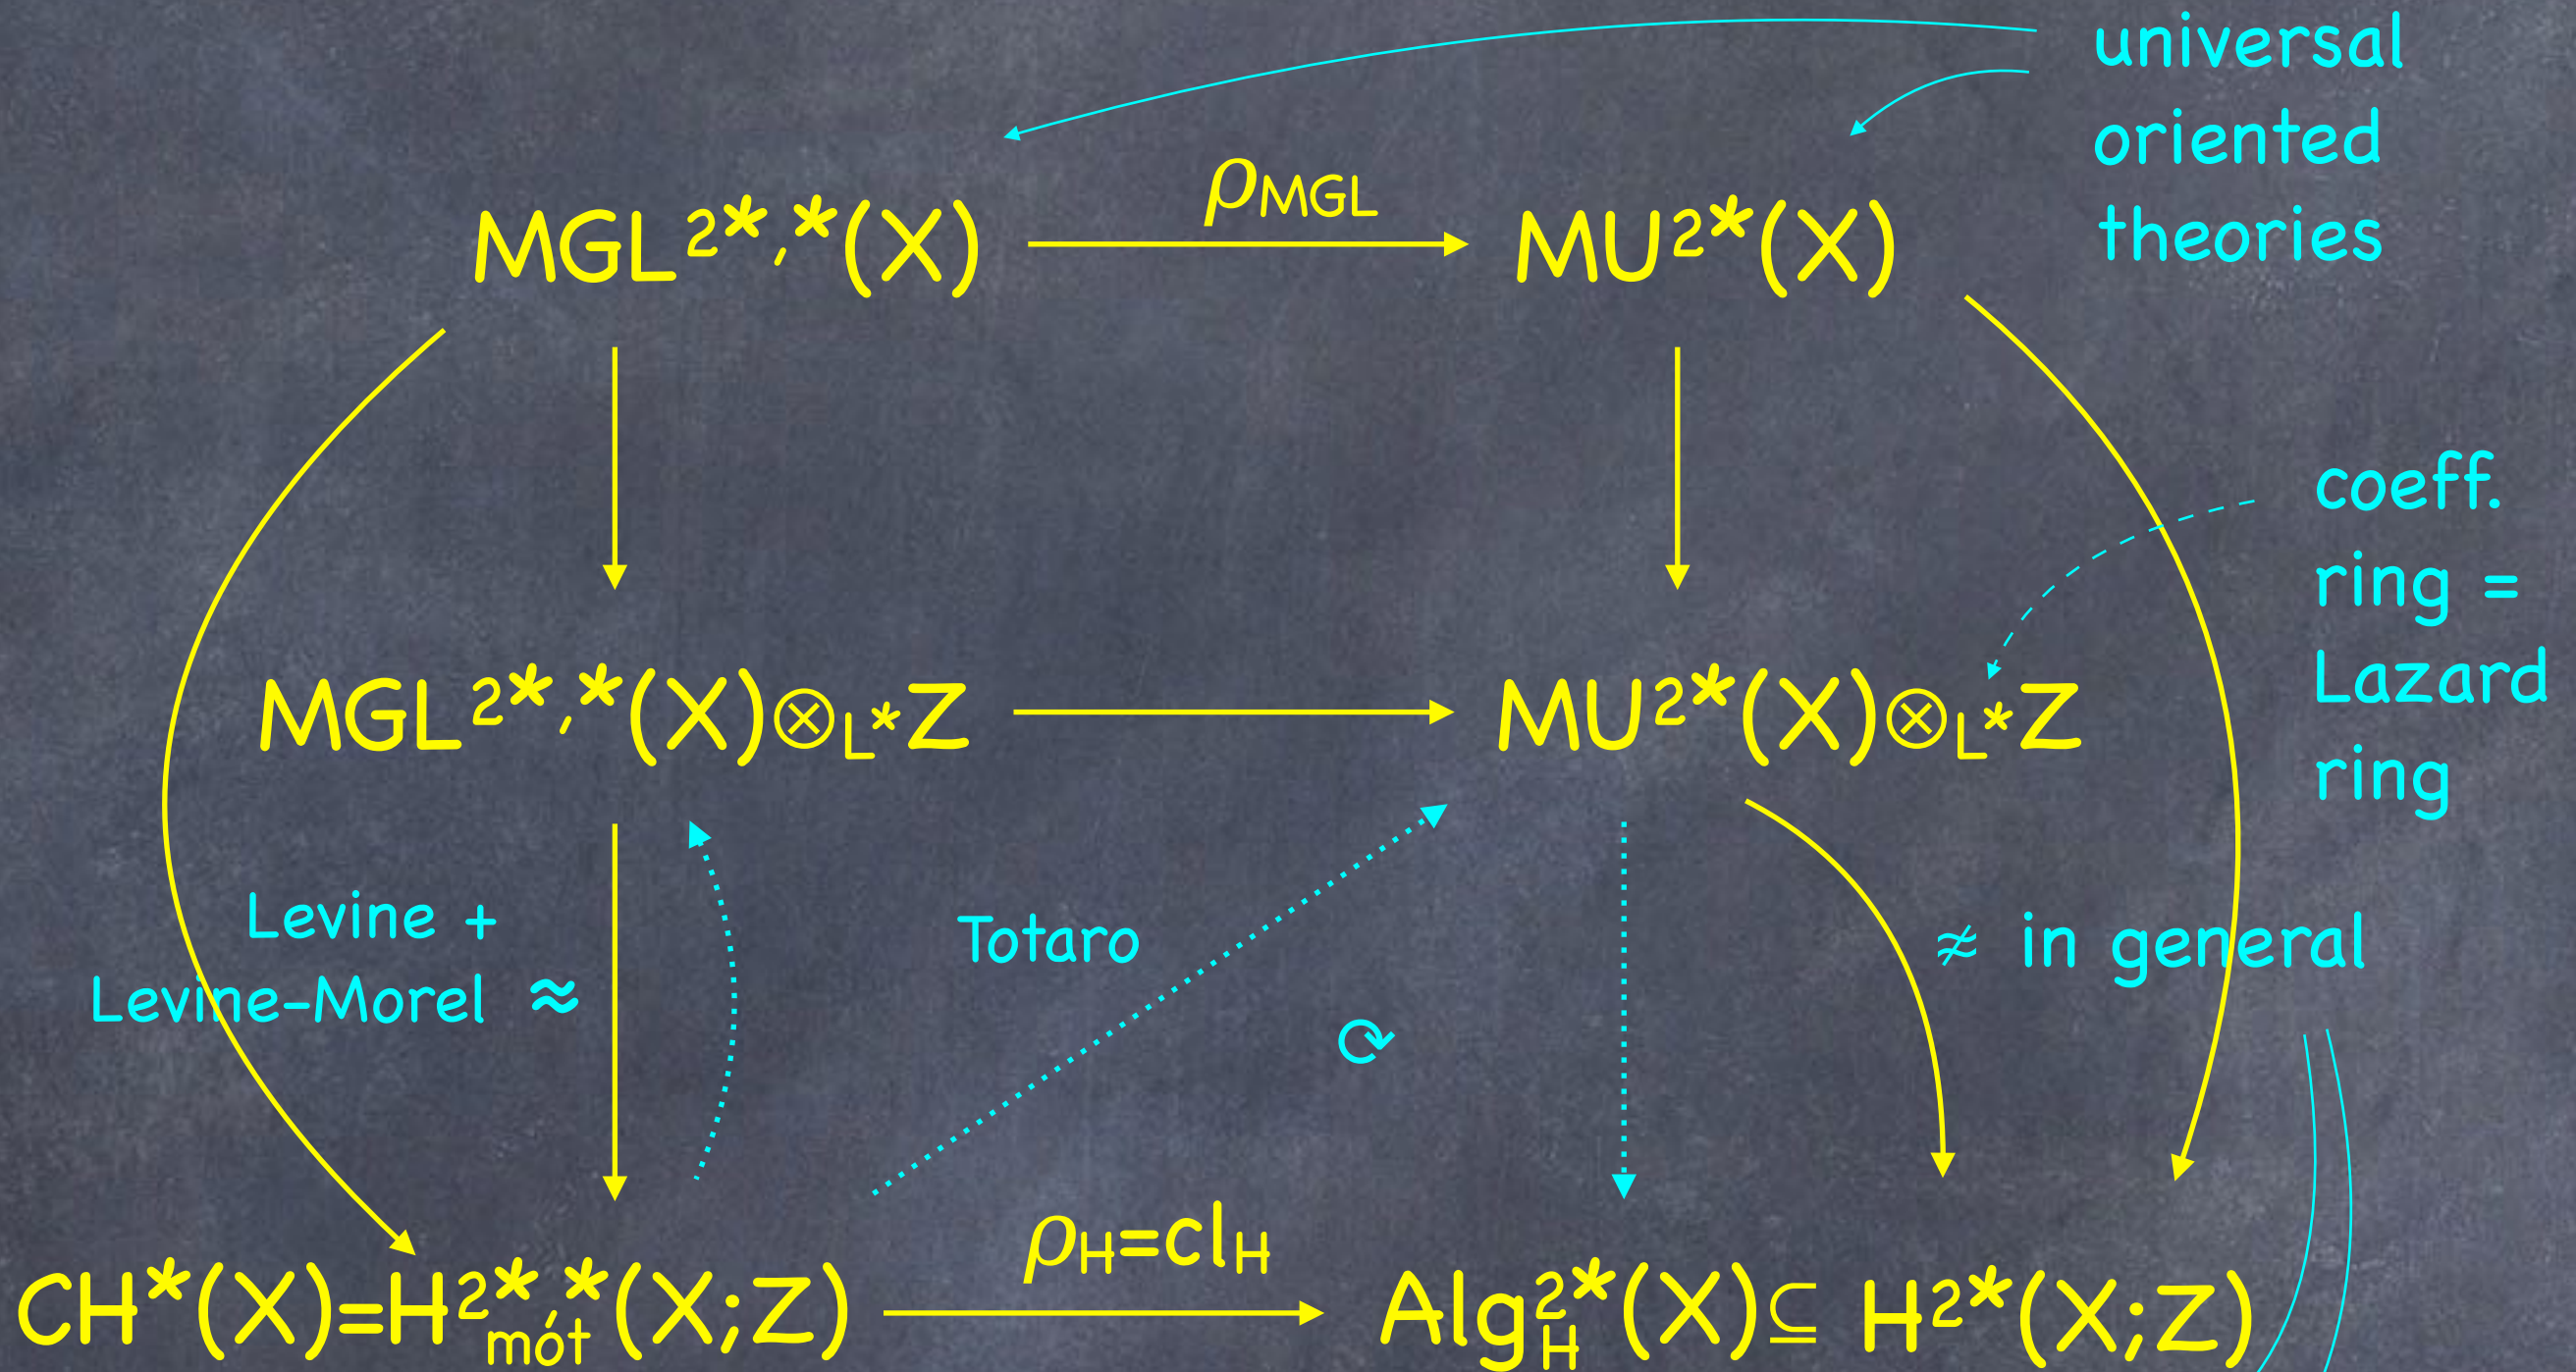 universal
oriented
theories
ρMGL
MGL2*,*(X)
MU2*(X)
coeff.
ring =
Lazard
ring
MGL2*,*(X)⊗L*Z
MU2*(X)⊗L*Z
Levine +
Levine-Morel ≈
Totaro
≉ in general
⟳
ρH=clH
CH*(X)=H2*,*mót(X;Z)
Alg2*H(X)⊆ H2*(X;Z)